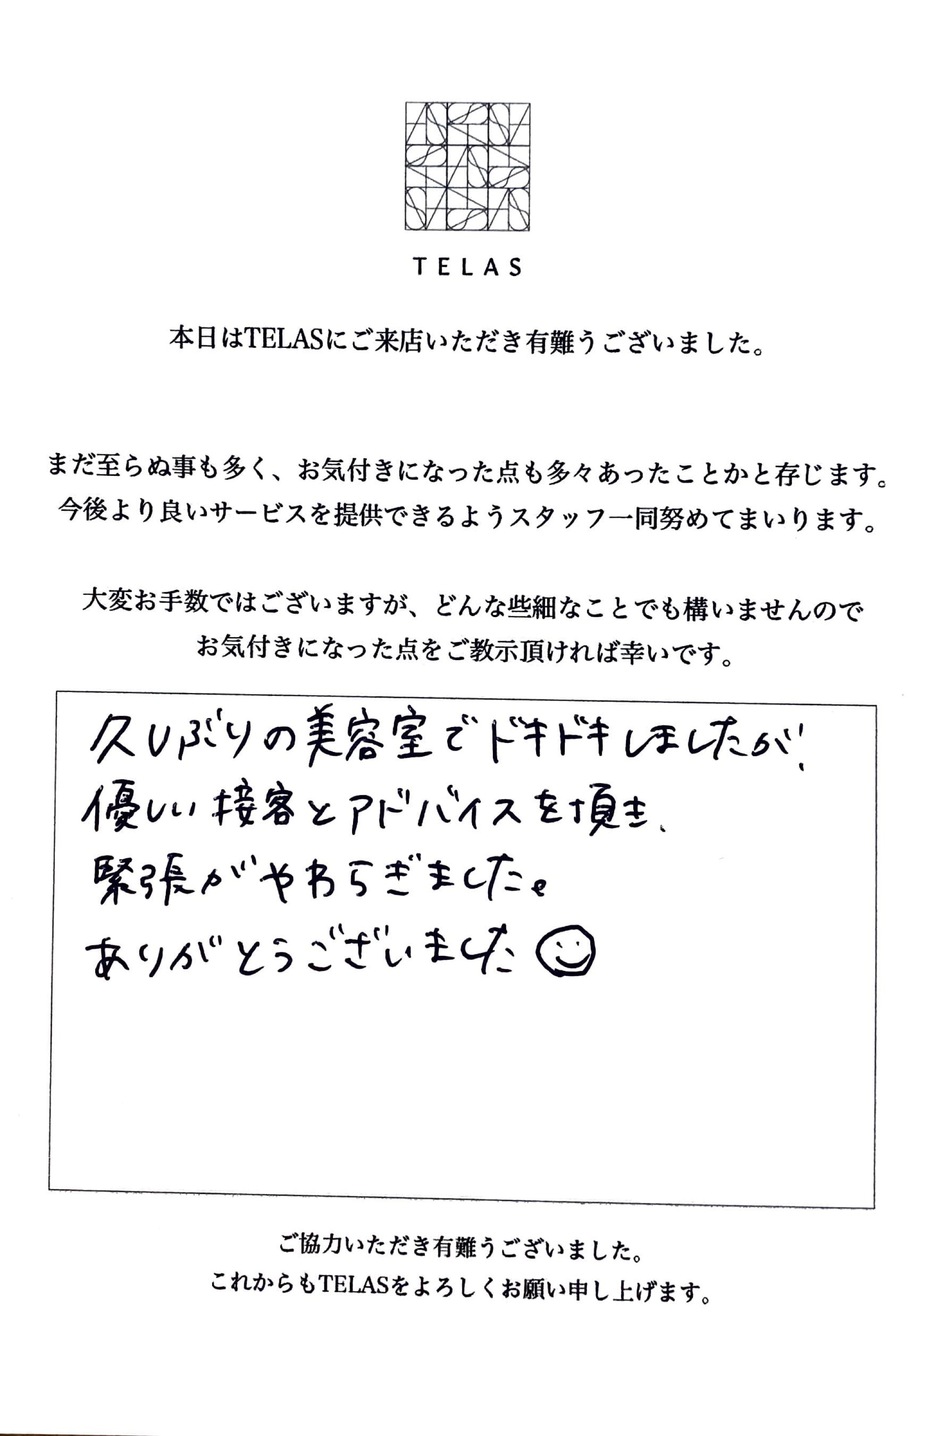 TELAS
本日はTELASにご来店いただき有難うございました。
まだ至らぬ事も多く、お気付きになった点も多々あったことかと存じます。
今後より良いサービスを提供できるようスタッフ一同努めてまいります。
大変お手数ではございますが、どんな些細なことでも構いませんので
お気付きになった点をご教示頂ければ幸いです。
久しぶりの美容室でドキドキしましたが、
優しい接客とアドバイスを頂き、
緊張がやわらぎました。
ありがとうございました
ご協力いただき有難うございました。
これからもTELASをよろしくお願い申し上げます。